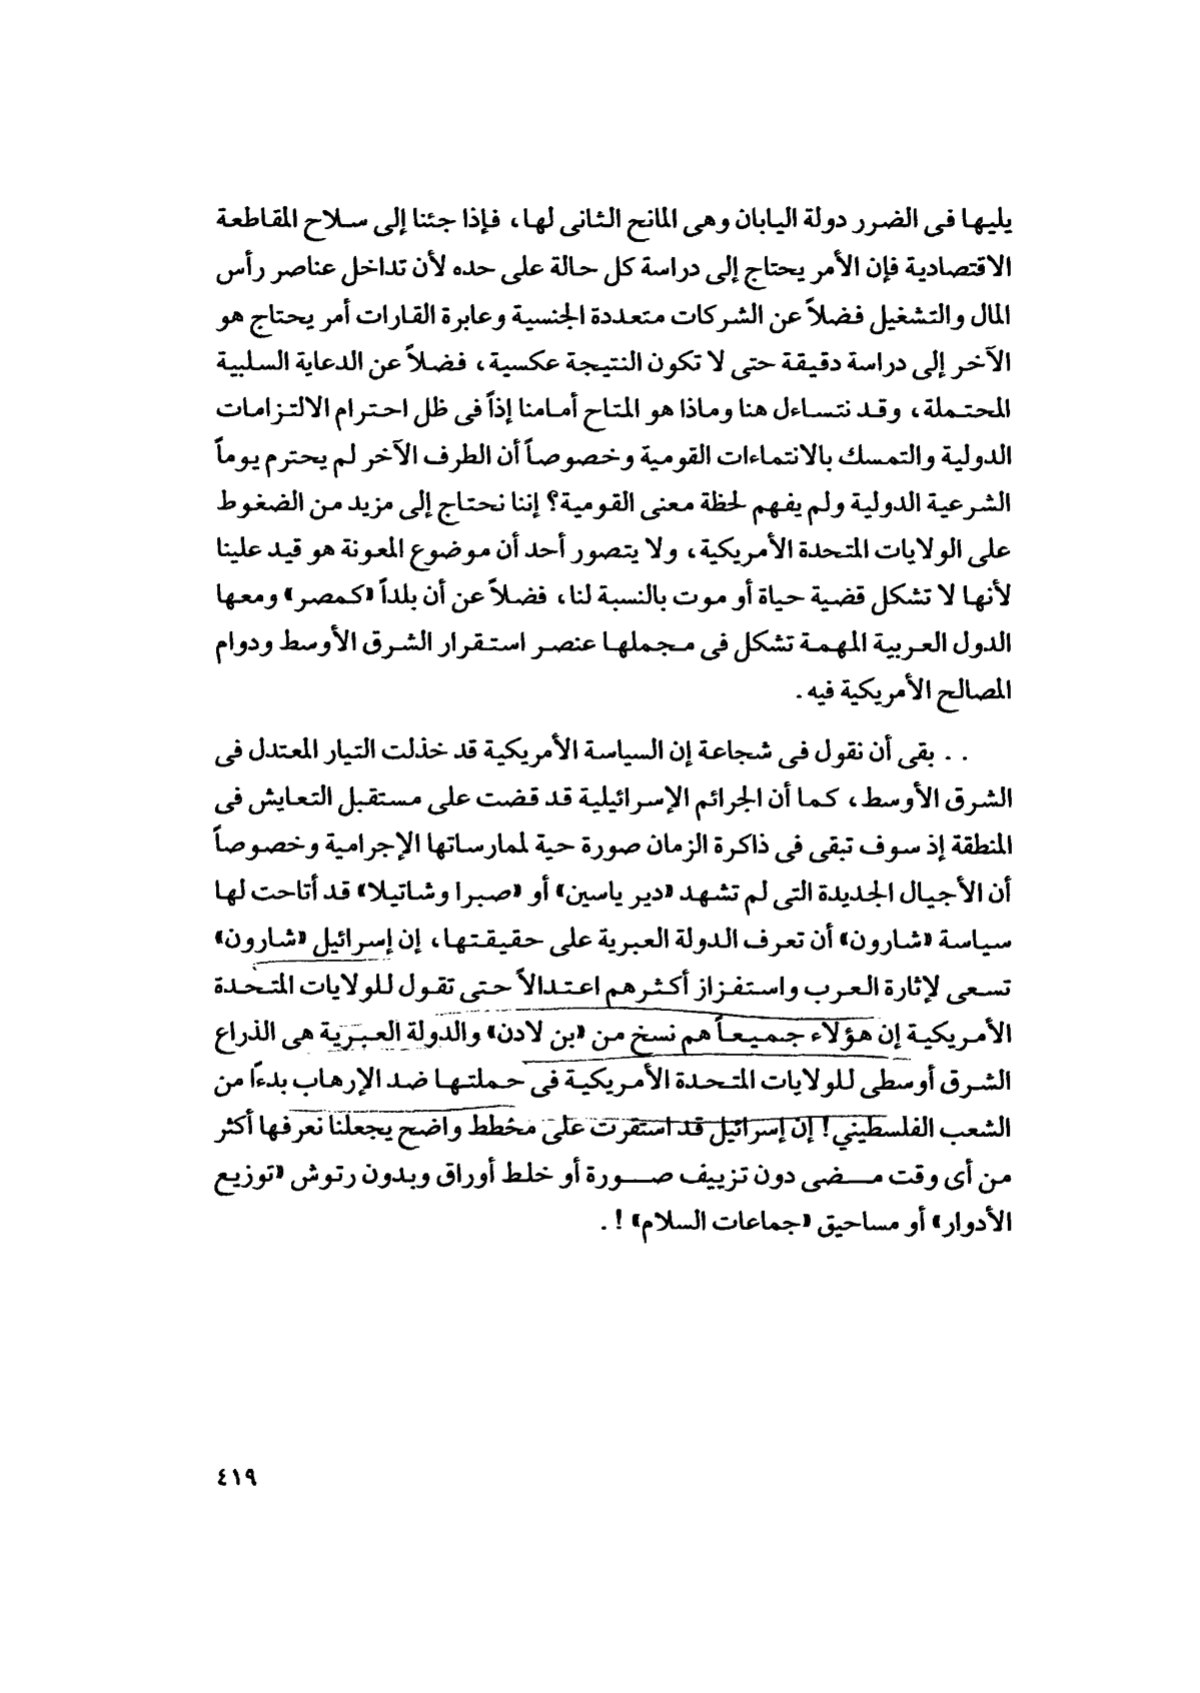 يليها فى الضرر دولة اليابان وهى المانح الثانى لها، فإذا جئنا إلى سلاح المقاطعة
الاقتصادية فإن الأمر يحتاج إلى دراسة كل حالة على حده لأن تداخل عناصر رأس
المال والتشغيل فضلاً عن الشركات متعددة الجنسية وعابرة القارات أمر يحتاج هو
الآخر إلى دراسة دقيقة حتى لا تكون النتيجة عكسية، فضلاً عن الدعاية السلبية
المحتملة، وقد نتساءل هنا وماذا هو المتاح أمامنا إذاً فى ظل احترام الالتزامات
الدولية والتمسك بالانتماءات القومية وخصوصاً أن الطرف الآخر لم يحترم يوماً
الشرعية الدولية ولم يفهم لحظة معنى القومية؟ إننا نحتاج إلى مزيد من الضغوط
على الولايات المتحدة الأمريكية، ولا يتصور أحد أن موضوع المعونة هو قيد علينا
لأنها لا تشكل قضية حياة أو موت بالنسبة لنا، فضلاً عن أن بلداً «كمصر» ومعها
الدول العربية المهمة تشكل فى مجملها عنصر استقرار الشرق الأوسط ودوام
المصالح الأمريكية فيه.
.. بقى أن نقول فى شجاعة إن السياسة الأمريكية قد خذلت التيار المعتدل فى
الشرق الأوسط، كما أن الجرائم الإسرائيلية قد قضت على مستقبل التعايش فى
المنطقة إذ سوف تبقى فى ذاكرة الزمان صورة حية لممارساتها الإجرامية وخصوصاً
أن الأجيال الجديدة التى لم تشهد «دير ياسين» أو «صبرا وشاتيلا» قد أتاحت لها
سياسة «شارون» أن تعرف الدولة العبرية على حقيقتها، إن إسرائيل «شارون»
تسعى لإثارة العرب واستفزاز أكثرهم اعتدالاً حتى تقول للولايات المتحدة
الأمريكية إن هؤلاء جميعاً هم نسخ من «بن لادن» والدولة العبرية هى الذراع
الشرق أوسطى للولايات المتحدة الأمريكية فى حملتها ضد الإرهاب بدءًا من
الشعب الفلسطيني! إن إسرائيل قد استقرت على مخطط واضح يجعلنا نعرفها أكثر
من أى وقت مضى دون تزييف صورة أو خلط أوراق وبدون رتوش «توزيع
الأدوار» أو مساحيق «جماعات السلام»!.
٤١٩